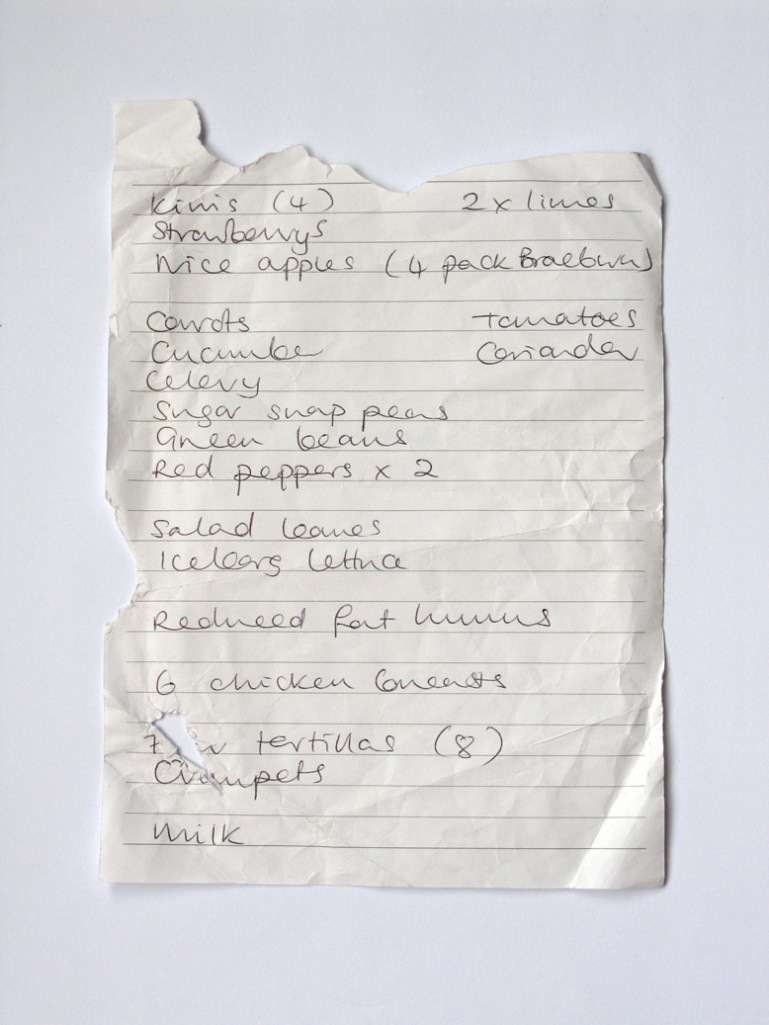 Kiwis (4) 2 x limes
Strawberrys
Nice apples (4 pack Braeburn)
Carrots Tomatoes
Cucumber Coriander
Celery
Sugar snap peas
Green beans
Red peppers x 2
Salad leaves
Iceberg lettuce
Reduced fat humus
6 chicken breasts
tertillas (8)
Crumpets
Milk